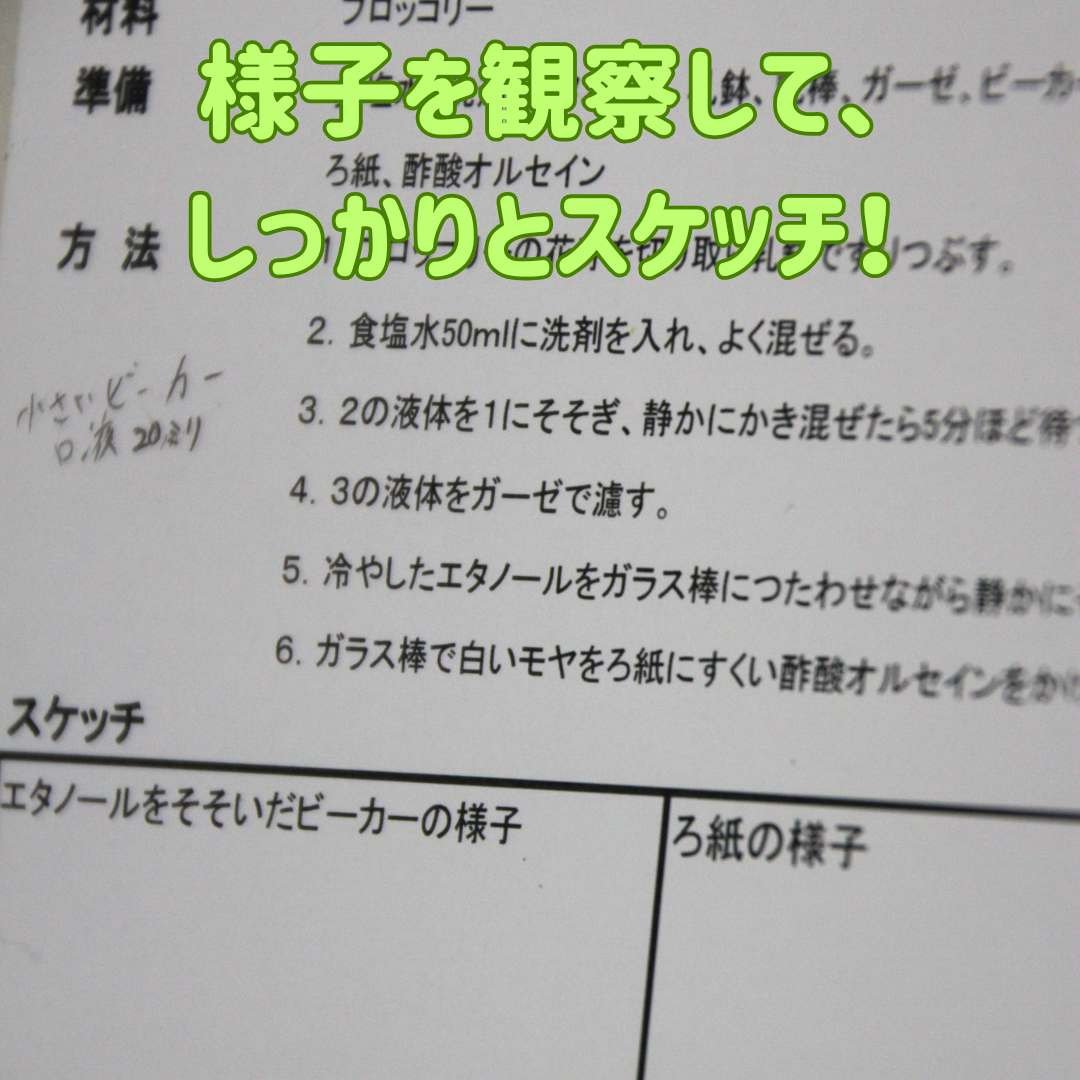 材料 ブロッコリー
様子を観察して、
準備 鉢、棒、ガーゼ、ビーカー
ろ紙、酢酸オルセイン
しっかりとスケッチ!
方法 1. の花 を切り取 つぶす。
2. 食塩水50mlに洗剤を入れ、よく混ぜる。
小さいビーカー
3. 2の液体を1にそそぎ、静かにかき混ぜたら5分ほど待
液 20ミリ
4. 3の液体をガーゼで濾す。
5. 冷やしたエタノールをガラス棒につたわせながら静かに
6. ガラス棒で白いモヤをろ紙にすくい酢酸オルセインをかけ
スケッチ
エタノールをそそいだビーカーの様子
ろ紙の様子